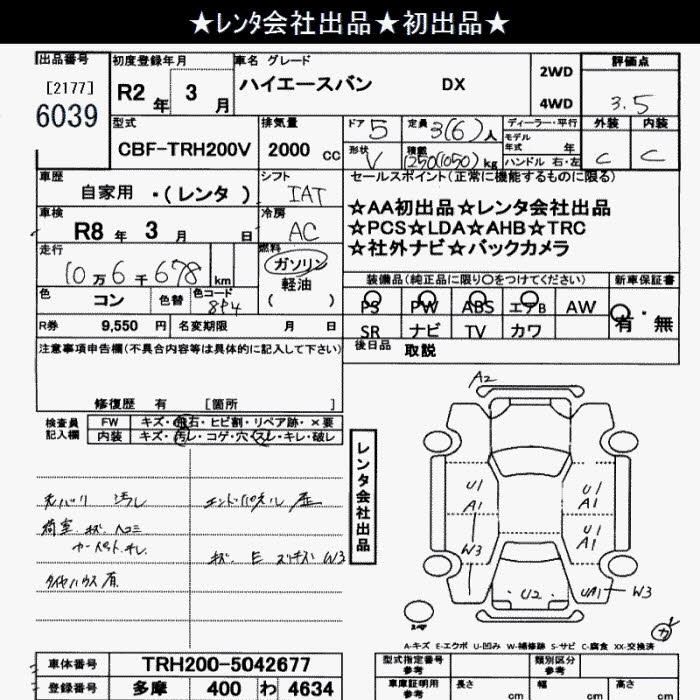 ★レンタ会社出品★初出品★
出品番号
[2177]
6039
初度登録年月
R2 年 3 月
車名 グレード
ハイエースバン DX
2WD
4WD
評価点
3.5
外装 内装
C C
型式
CBF-TRH200V
排気量
2000 cc
ドア 5
定員 3(6)人
形状 V
積載 1250(1050)kg
ディーラー・平行
モデル年式 年
ハンドル 右・左
車歴
自家用 ・(レンタ)
シフト
IAT
車検
R8 年 3 月 日
冷房
AC
走行
10万6千678 km
燃料
ガソリン
軽油
( )
色
コン
色替
色コード
8P4
R券 9,550 円
名変期限 月 日
セールスポイント(正常に機能するものに限る)
☆AA初出品☆レンタ会社出品
☆PCS☆LDA☆AHB☆TRC
☆社外ナビ☆バックカメラ
装備品(純正品に限り〇をつけてください)
新車保証書
PS PW ABS エアB AW
SR ナビ TV カワ
有・無
後日品 取説
注意事項申告欄(不具合内容等は具体的に記入して下さい)
修復歴 有 [箇所 ]
検査員記入欄
FW キズ・飛石・ヒビ割・リペア跡・×要
内装 キズ・汚レ・コゲ・穴・スレ・キレ・破レ
レンタ会社出品
汚れ
荷室 キズ ヘコミ
カーペット キレ
タイヤハウス
エンドパネル
キズ E W3
A2
U1
A1
W3
U1
A1
U1
A1
U2
UA1
W3
A-キズ E-エクボ U-凹み W-補修跡 S-サビ C-腐食 XX-交換済
車体番号 TRH200-5042677
登録番号 多摩 400 わ 4634
型式指定番号 参考
類別区分 参考
車庫証明用 参考
長さ cm
幅 cm
高さ cm